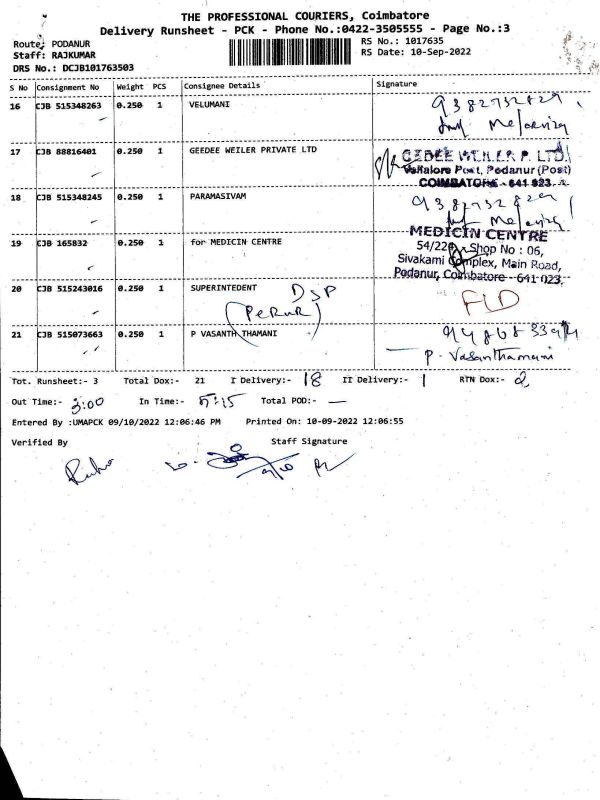 THE PROFESSIONAL COURIERS, Coimbatore
Delivery Runsheet - PCK - Phone No.:0422-3505555 - Page No.:3
Route: PODANUR
RS No.: 1017635
Staff: RAJKUMAR
RS Date: 10-Sep-2022
DRS No.: DCJB101763503
S No Consignment No Weight PCS Consignee Details Signature
16 CJB 515348263 0.250 1 VELUMANI
17 CJB 88816401 0.250 1 GEEDEE WEILER PRIVATE LTD
GEDEE WEILER P. LTD.
Vellalore Post, Podanur (Post)
COIMBATORE - 641 023.
18 CJB 515348245 0.250 1 PARAMASIVAM
19 CJB 165832 0.250 1 for MEDICIN CENTRE
MEDICIN CENTRE
Shop No : 06,
Sivakami Complex, Main Road,
Podanur, Coimbatore - 641 023.
20 CJB 515243016 0.250 1 SUPERINTEDENT DSP
(PERUR)
21 CJB 515073663 0.250 1 P VASANTH THAMANI
P. Vasanthamani
Tot. Runsheet:- 3 Total Dox:- 21 I Delivery:- 18 II Delivery:- 1 RTN Dox:- 2
Out Time:- 3:00 In Time:- 5:15 Total POD:- —
Entered By :UMAPCK 09/10/2022 12:06:46 PM Printed On: 10-09-2022 12:06:55
Verified By Staff Signature